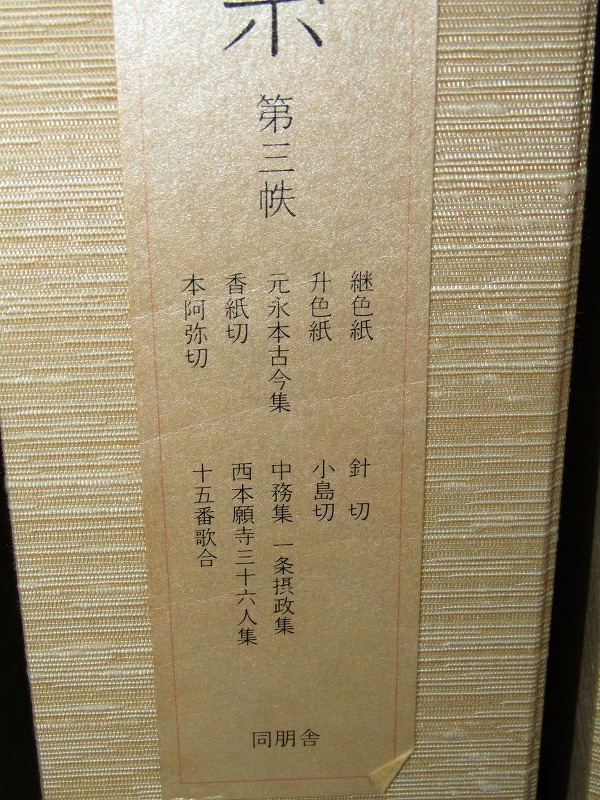 第三帙
継色紙
升色紙
元永本古今集
香紙切
本阿弥切
針切
小島切
中務集 一条摂政集
西本願寺三十六人集
十五番歌合
同朋舎